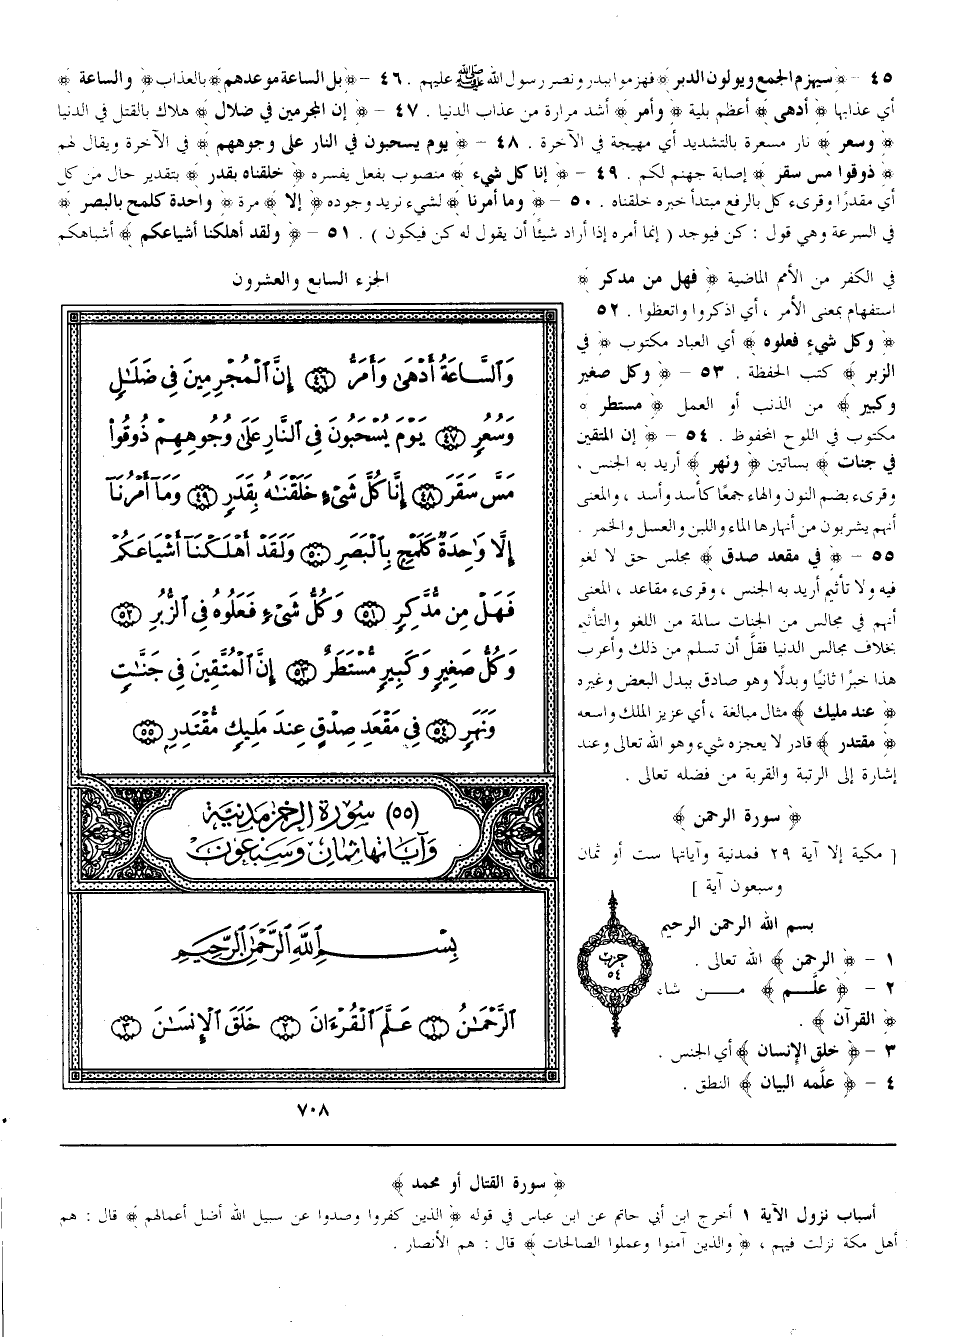 ٤٥ – ﴿ سيهزم الجمع ويولون الدبر ﴾ فهزموا ببدر ونصر رسول الله ﷺ عليهم . ٤٦ – ﴿ بل الساعة موعدهم ﴾ بالعذاب ﴿ والساعة ﴾
أي عذابها ﴿ أدهى ﴾ أعظم بلية ﴿ وأمر ﴾ أشد مرارة من عذاب الدنيا . ٤٧ – ﴿ إن المجرمين في ضلال ﴾ هلاك بالقتل في الدنيا
﴿ وسعر ﴾ نار مسعرة بالتشديد أي مهيجة في الآخرة . ٤٨ – ﴿ يوم يسحبون في النار على وجوههم ﴾ في الآخرة ويقال لهم
﴿ ذوقوا مس سقر ﴾ إصابة جهنم لكم . ٤٩ – ﴿ إنا كل شيء ﴾ منصوب بفعل يفسره ﴿ خلقناه بقدر ﴾ بتقدير حال من كل
أي مقدرًا وقرىء كل بالرفع مبتدأ خبره خلقناه . ٥٠ – ﴿ وما أمرنا ﴾ لشيء نريد وجوده ﴿ إلا ﴾ مرة ﴿ واحدة كلمح بالبصر ﴾
في السرعة وهي قول : كن فيوجد ( إنما أمره إذا أراد شيئًا أن يقول له كن فيكون ) . ٥١ – ﴿ ولقد أهلكنا أشياعكم ﴾ أشباهكم
في الكفر من الأمم الماضية ﴿ فهل من مدكر ﴾
استفهام بمعنى الأمر ، أي اذكروا واتعظوا . ٥٢
﴿ وكل شيء فعلوه ﴾ أي العباد مكتوب ﴿ في
الزبر ﴾ كتب الحفظة . ٥٣ – ﴿ وكل صغير
وكبير ﴾ من الذنب أو العمل ﴿ مستطر ﴾
مكتوب في اللوح المحفوظ . ٥٤ – ﴿ إن المتقين
في جنات ﴾ بساتين ﴿ ونهر ﴾ أريد به الجنس ،
وقرىء بضم النون والهاء جمعًا كأسد وأسد ، والمعنى
أنهم يشربون من أنهارها الماء واللبن والعسل والخمر .
٥٥ – ﴿ في مقعد صدق ﴾ مجلس حق لا لغو
فيه ولا تأثيم أريد به الجنس ، وقرىء مقاعد ، المعنى
أنهم في مجالس من الجنات سالمة من اللغو والتأثيم
بخلاف مجالس الدنيا فقلَّ أن تسلم من ذلك وأعرب
هذا خبرًا ثانيًا وبدلًا وهو صادق ببدل البعض وغيره
﴿ عند مليك ﴾ مثال مبالغة ، أي عزيز الملك واسعه
﴿ مقتدر ﴾ قادر لا يعجزه شيء وهو الله تعالى وعند
إشارة إلى الرتبة والقربة من فضله تعالى .
﴿ سورة الرحمن ﴾
[ مكية إلا آية ٢٩ فمدنية وآياتها ست أو ثمان
وسبعون آية ]
بسم الله الرحمن الرحيم
١ – ﴿ الرحمن ﴾ الله تعالى .
٢ – ﴿ علَّــم ﴾ مــن شاء
﴿ القرآن ﴾ .
٣ – ﴿ خلق الإنسان ﴾ أي الجنس .
٤ – ﴿ علَّمه البيان ﴾ النطق .
حزب
٥٤
الجزء السابع والعشرون
وَالسَّاعَةُ أَدْهَىٰ وَأَمَرُّ ٤٦ إِنَّ الْمُجْرِمِينَ فِي ضَلَٰلٍ
وَسُعُرٍ ٤٧ يَوْمَ يُسْحَبُونَ فِي النَّارِ عَلَىٰ وُجُوهِهِمْ ذُوقُوا۟
مَسَّ سَقَرَ ٤٨ إِنَّا كُلَّ شَىْءٍ خَلَقْنَٰهُ بِقَدَرٍ ٤٩ وَمَآ أَمْرُنَآ
إِلَّا وَٰحِدَةٌ كَلَمْحٍ بِالْبَصَرِ ٥٠ وَلَقَدْ أَهْلَكْنَآ أَشْيَاعَكُمْ
فَهَلْ مِن مُّدَّكِرٍ ٥١ وَكُلُّ شَىْءٍ فَعَلُوهُ فِي الزُّبُرِ ٥٢
وَكُلُّ صَغِيرٍ وَكَبِيرٍ مُّسْتَطَرٌ ٥٣ إِنَّ الْمُتَّقِينَ فِي جَنَّٰتٍ
وَنَهَرٍ ٥٤ فِي مَقْعَدِ صِدْقٍ عِندَ مَلِيكٍ مُّقْتَدِرٍ ٥٥
(٥٥) سُورَةُ الرَّحْمٰنِ مَدَنِيَّة
وَآيَاتُهَا ثَمَانٍ وَسَبْعُونَ
بِسْمِ اللَّهِ الرَّحْمَٰنِ الرَّحِيمِ
الرَّحْمَٰنُ ١ عَلَّمَ الْقُرْءَانَ ٢ خَلَقَ الْإِنسَٰنَ ٣
٧٠٨
﴿ سورة القتال أو محمد ﴾
أسباب نزول الآية ١ أخرج ابن أبي حاتم عن ابن عباس في قوله ﴿ الذين كفروا وصدوا عن سبيل الله أضل أعمالهم ﴾ قال : هم
أهل مكة نزلت فيهم ، ﴿ والذين آمنوا وعملوا الصالحات ﴾ قال : هم الأنصار .